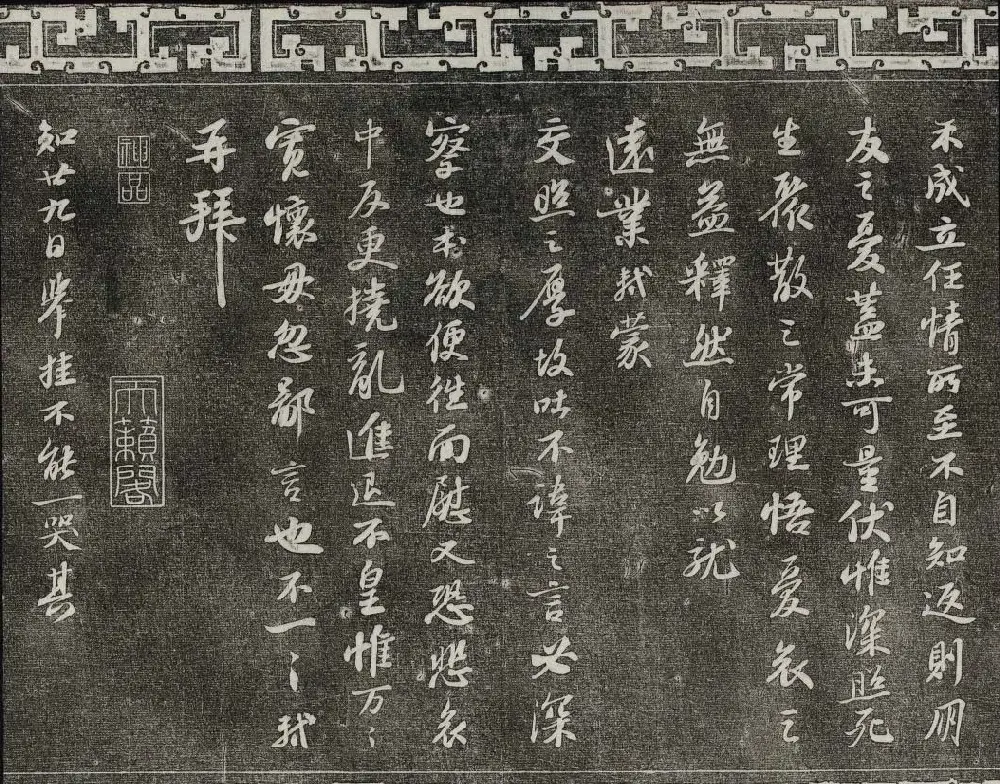 不成立任情所至不自知返則朋
友之憂蓋未可量伏惟深照死
生聚散之常理悟憂哀之
無益釋然自勉以就
遠業軾蒙
交照之厚故吐不諱之言必深
察也本欲便往面慰又恐悲哀
中反更撓亂進退不皇惟万〻
寬懷毋忽鄙言也不一〻軾
再拜
神品
天籟閣
知廿九日舉挂不能一哭其